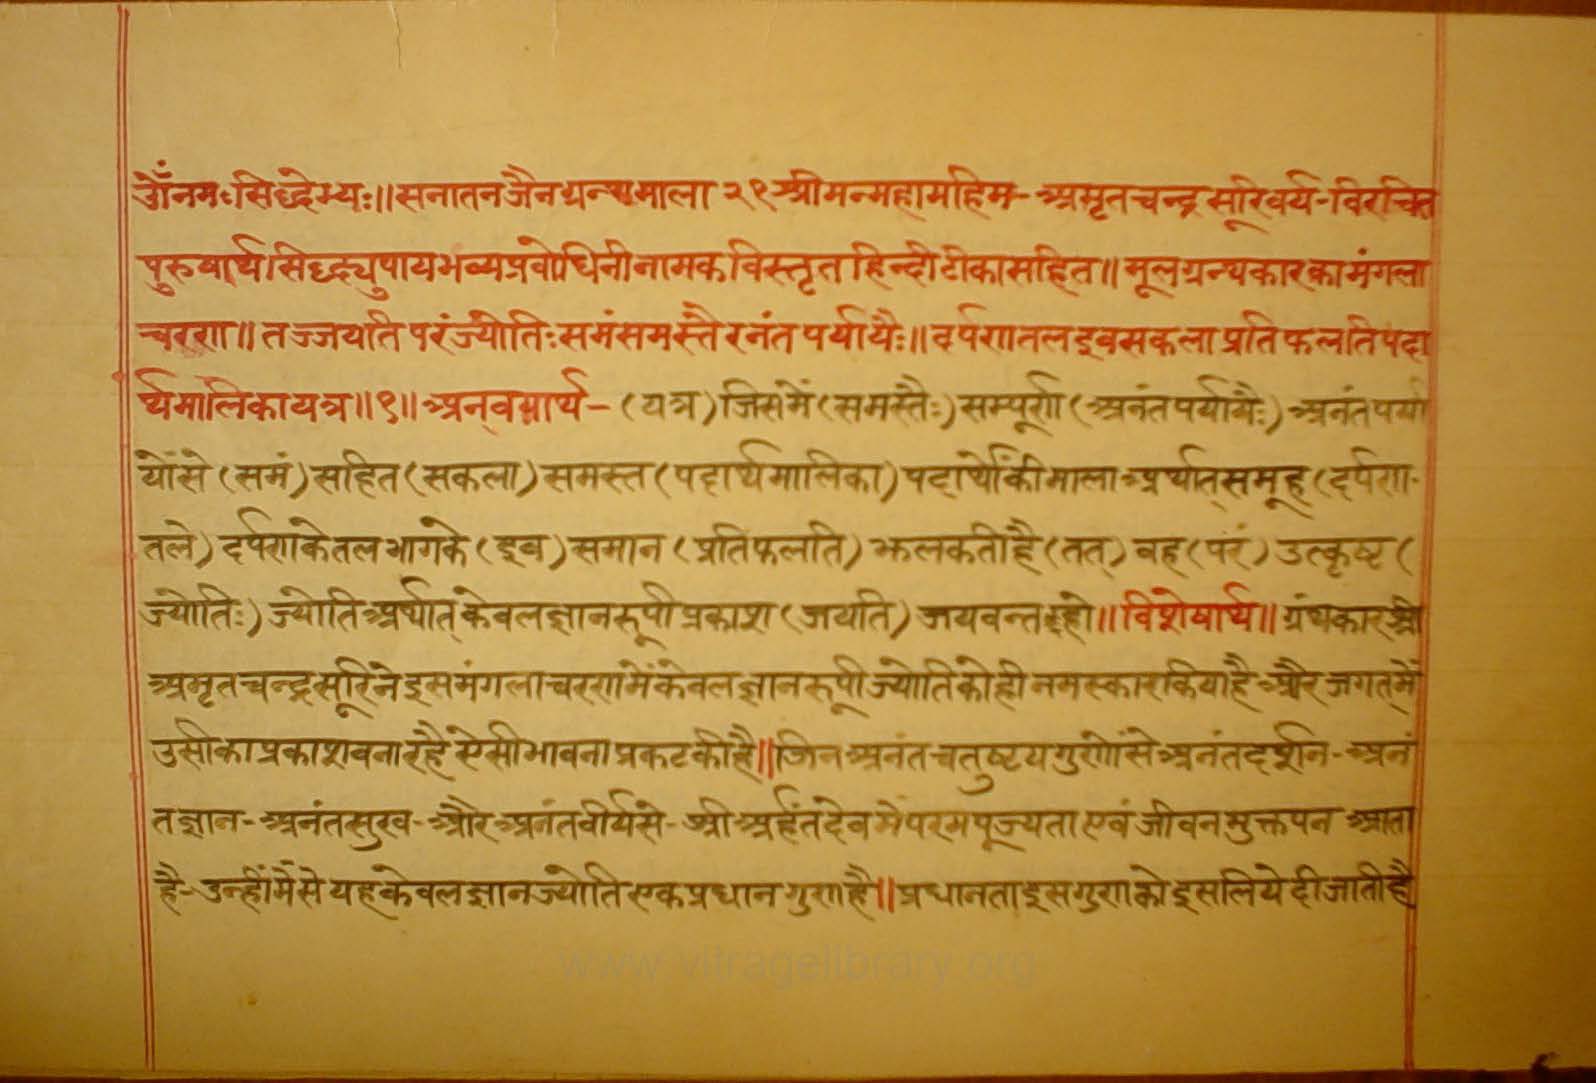 ओँ नमः सिद्धेभ्यः॥ सनातन जैन ग्रन्थमाला २९ श्रीमन्महामहिम- अमृतचन्द्र सूरिवर्य-विरचित
पुरुषार्थ सिद्ध्युपाय भव्यप्रबोधिनी नामक विस्तृत हिन्दी टीका सहित॥ मूल ग्रन्थकार का मंगला
चरण॥ तज्जयति परं ज्योतिः समं समस्तै रनंत पर्यायैः॥ दर्पणतल इव सकला प्रतिफलति पदा
र्थमालिका यत्र॥१॥ अन्वयार्थ- (यत्र) जिसमें (समस्तैः) सम्पूर्ण (अनंत पर्यायैः) अनंत पर्या
यों से (समं) सहित (सकला) समस्त (पदार्थमालिका) पदार्थों की माला अर्थात् समूह (दर्पण-
तले) दर्पण के तल भाग के (इव) समान (प्रतिफलति) झलकती है (तत्) वह (परं) उत्कृष्ट (
ज्योतिः) ज्योति अर्थात् केवलज्ञान रूपी प्रकाश (जयति) जयवन्त हो॥ विशेषार्थ॥ ग्रंथकार श्री
अमृतचन्द्र सूरि ने इस मंगलाचरण में केवलज्ञान रूपी ज्योति को ही नमस्कार किया है और जगत् में
उसी का प्रकाश बना रहै ऐसी भावना प्रकट की है॥ जिन अनंत चतुष्टय गुणों से अनंतदर्शन- अनं
तज्ञान- अनंतसुख- और अनंतवीर्य से- श्री अर्हंतदेव में परम पूज्यता एवं जीवन मुक्तपन आता
है- उन्हीं में से यह केवलज्ञान ज्योति एक प्रधान गुण है॥ प्रधानता इस गुण को इसलिये दी जाती है
www.vitragelibrary.org